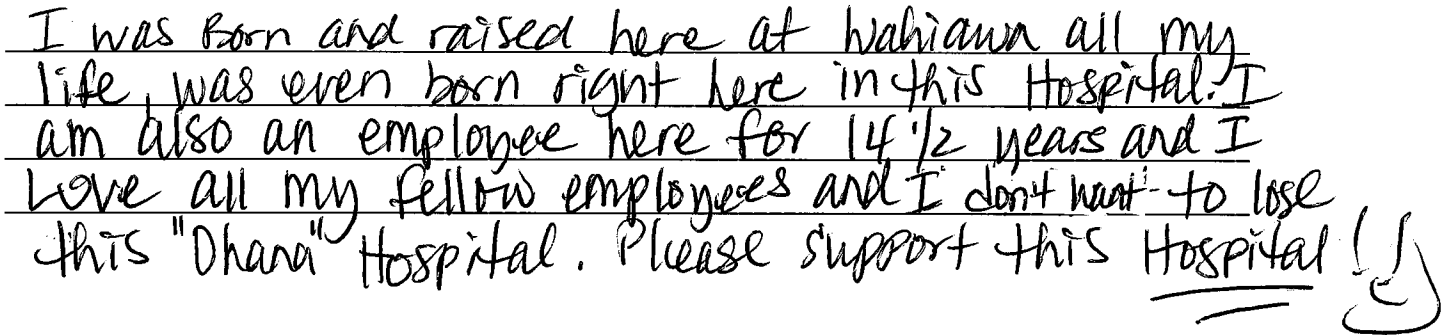 I was Born and raised here at Wahiawa all my
life, was even born right here in this Hospital. I
am also an employee here for 14 1/2 years and I
Love all my fellow employees and I don't want to lose
this "Ohana" Hospital. Please support this Hospital!!